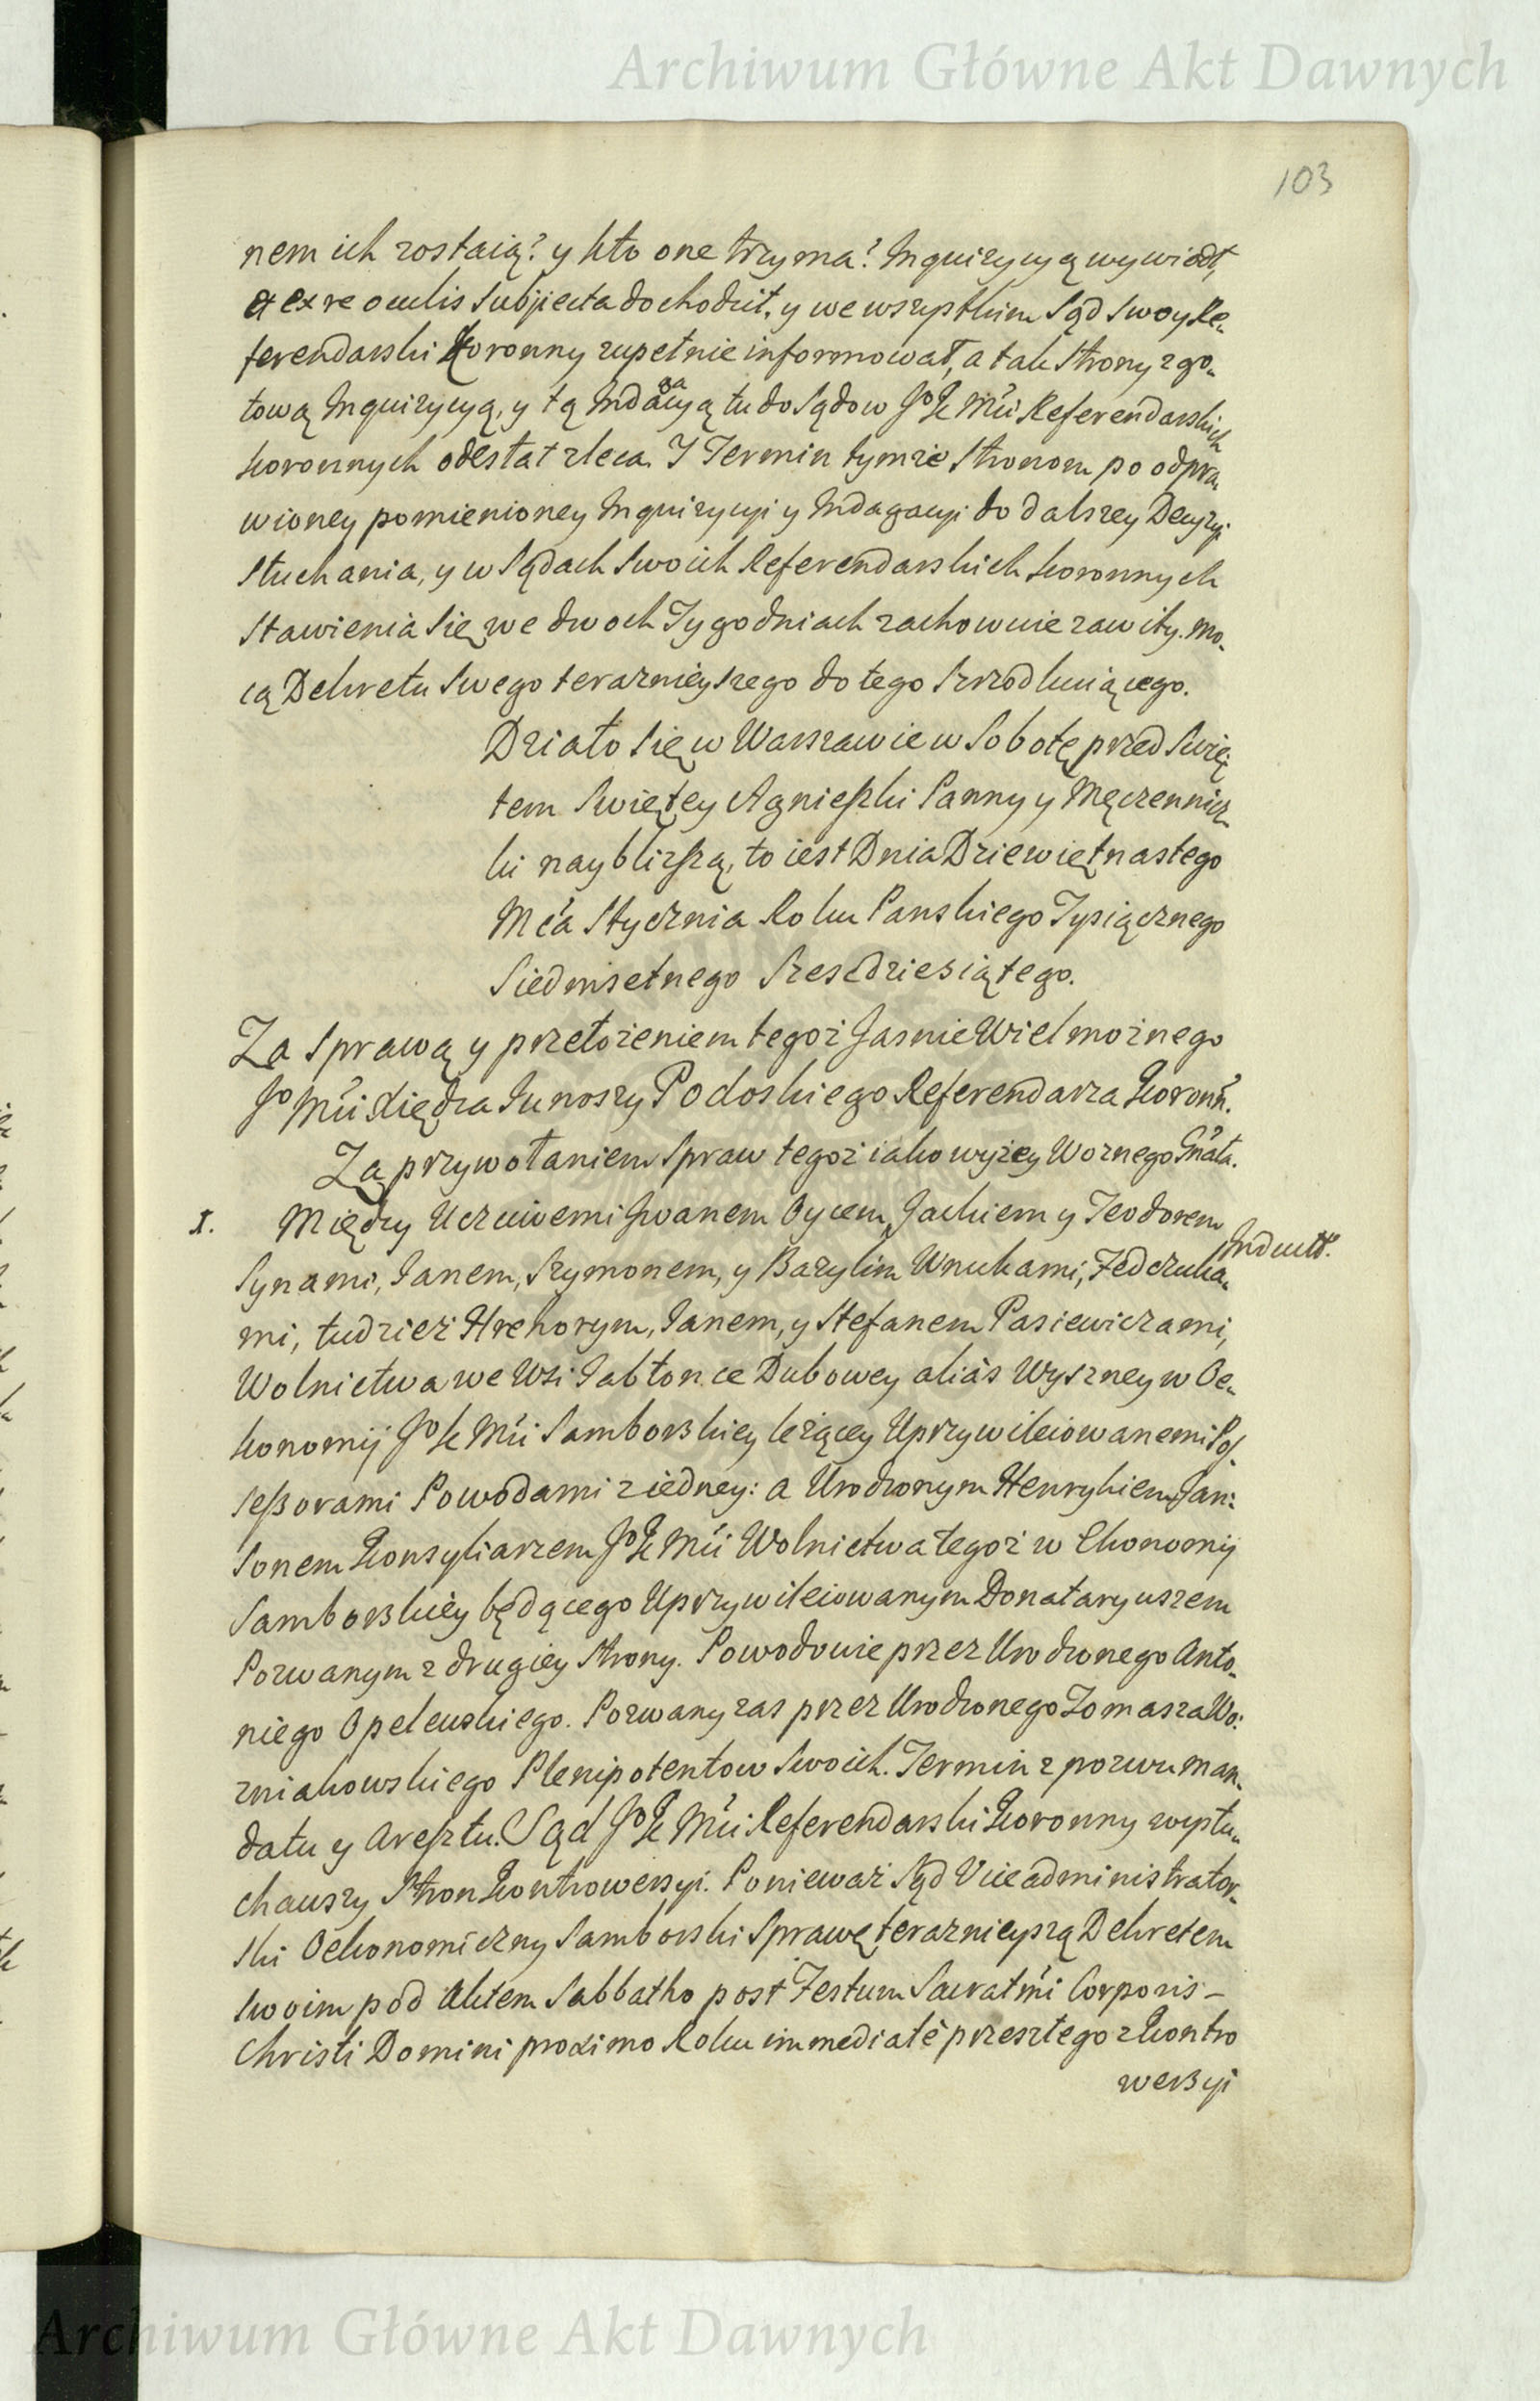 Archiwum Główne Akt Dawnych
103
nem ich zostaią? y kto one trzyma? Inquizycyą wywiodł,
et ex re oculis Subjecta dochodził, y we wszystkim Sąd Swoy Re-
ferendarski Koronny zupełnie informował, a tak Strony z go-
tową Inquizycyą, y tą Indagacyą tu do Sądow Jo K Mći Referendarskich
koronnych odesłał zleca. I Termin tymże Stronom po odpra-
wioney pomienioney Inquizycyi y Indagacyi do dalszey Decyzyi
Słuchania, y w Sądach Swoich Referendarskich koronnych
Stawienia Się we dwoch Tygodniach zachowuie zawity. mo-
cą Dekretu Swego teraznieyszego do tego Szrzodkuiącego.
Działo Się w Warszawie w Sobotę przed Swię-
tem Swiętey Agnieszki Panny y Męczennicz-
ki naybliższą, to iest Dnia Dziewiętnastego
Mća Stycznia Roku Panskiego Tysiącznego
Siedmsetnego Szescdziesiątego.
Za Sprawą y przełożeniem tegoż Jasnie Wielmożnego
Jo Mći Xiędza Junoszy Podoskiego Referendarza Koronn.
Za przywołaniem Spraw tegoż iako wyżey Woznego Gnała.
1. Między Uczciwemi Iwanem Oycem, Jackiem y Teodorem
Indukt.
Synami, Janem, Szymonem, y Bazylim Wnukami, Fedczuka-
mi, tudziez Hrehorym, Janem, y Stefanem Pasiewiczami,
Wolnictwa we Wsi Jabłonce Dubowey aliàs Wyszney w Oe-
konomij Jo K Mći Samborskiey leżącey Uprzywileiowanemi Pos-
seßorami Powodami z iedney: a Urodzonym Henrykiem Jan-
sonem Konsyliarzem Jo K Mći Wolnictwa tegoż w Ekonomij
Samborskiey będącego Uprzywileiowanym Donataryuszem
Pozwanym z drugiey Strony. Powodowie przez Urodzonego Anto-
niego Opeleuskiego. Pozwany zas przez Urodzonego Tomasza Wo-
zniakowskiego Plenipotentow Swoich. Termin z pozwu man-
datu y Aresztu. Sąd Jo K Mći Referendarski Koronny wysłu-
chawszy Stron Kontrowersyi. Ponieważ Sąd Viceadministrator-
ski Oekonomiczny Samborski Sprawę teraznieyszą Dekretem
Swoim pod Aktem Sabbatho post Festum Sacratmi Corporis -
Christi Domini proximo Roku immediatè przeszłego z Kontro
wersyi
Archiwum Główne Akt Dawnych